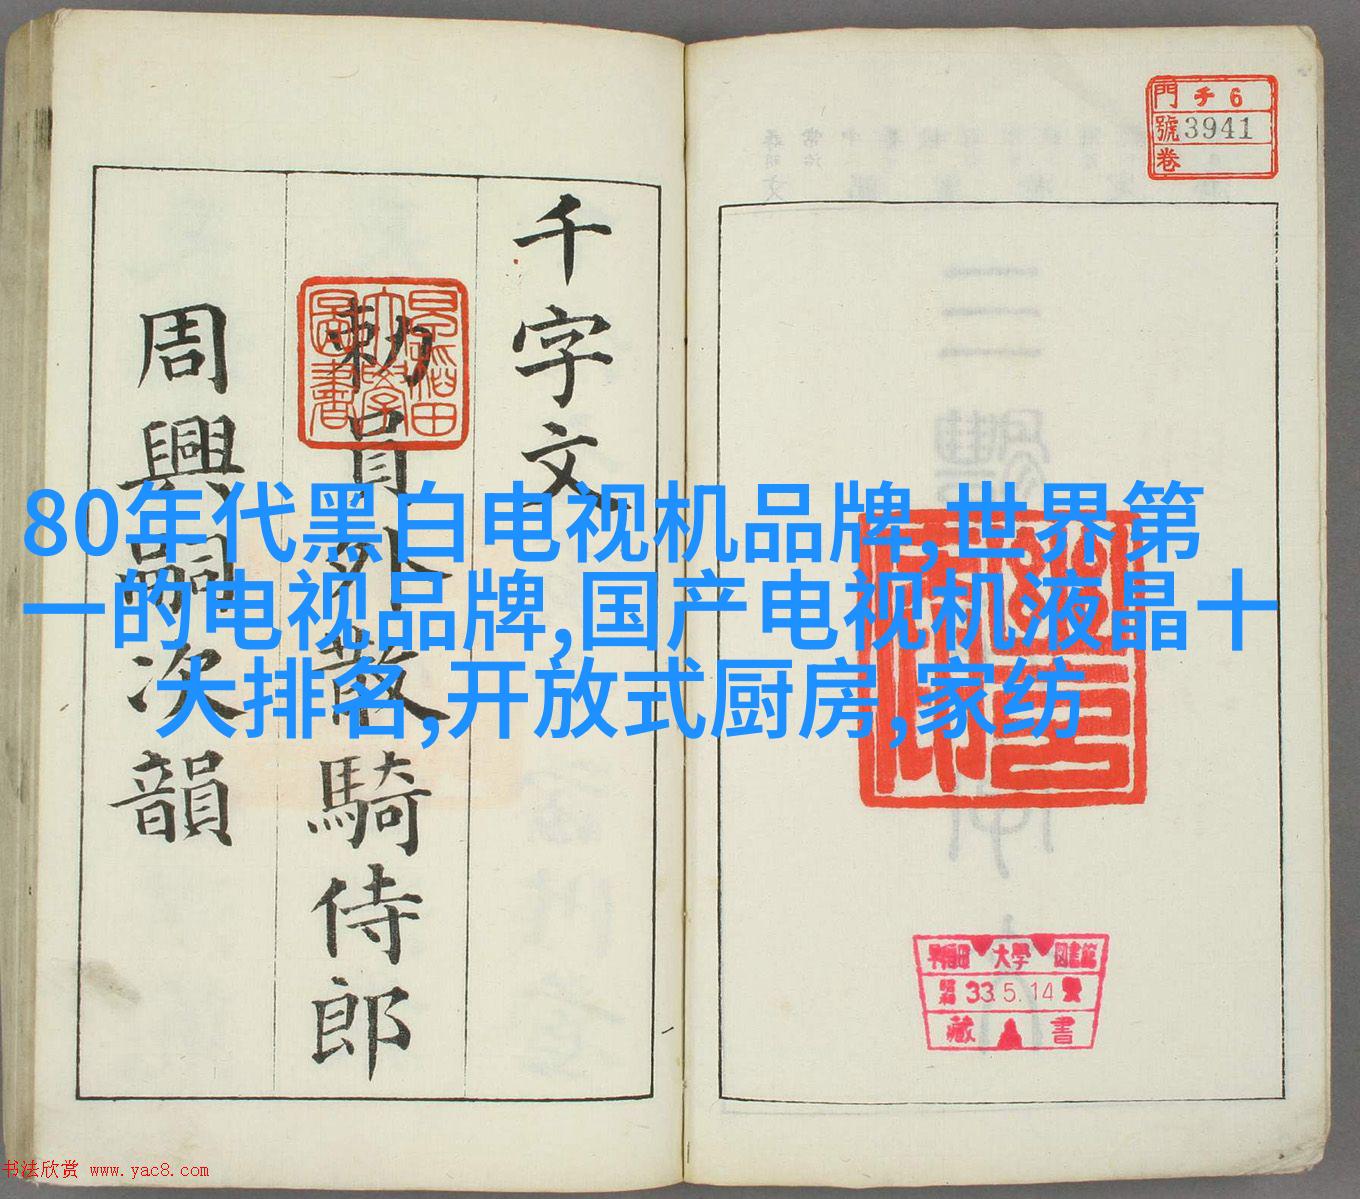 門 チ6
號 3941
卷
千字文
勅員外散騎侍郎
周興嗣次韻
早稲田大學圖書
80年代黑白电视机品牌,世界第
一的电视品牌,国产电视机液晶十
大排名,开放式厨房,家纺
早稲田大学図書館
昭和 33.5.14
藏書
书法欣赏 www.yac8.com